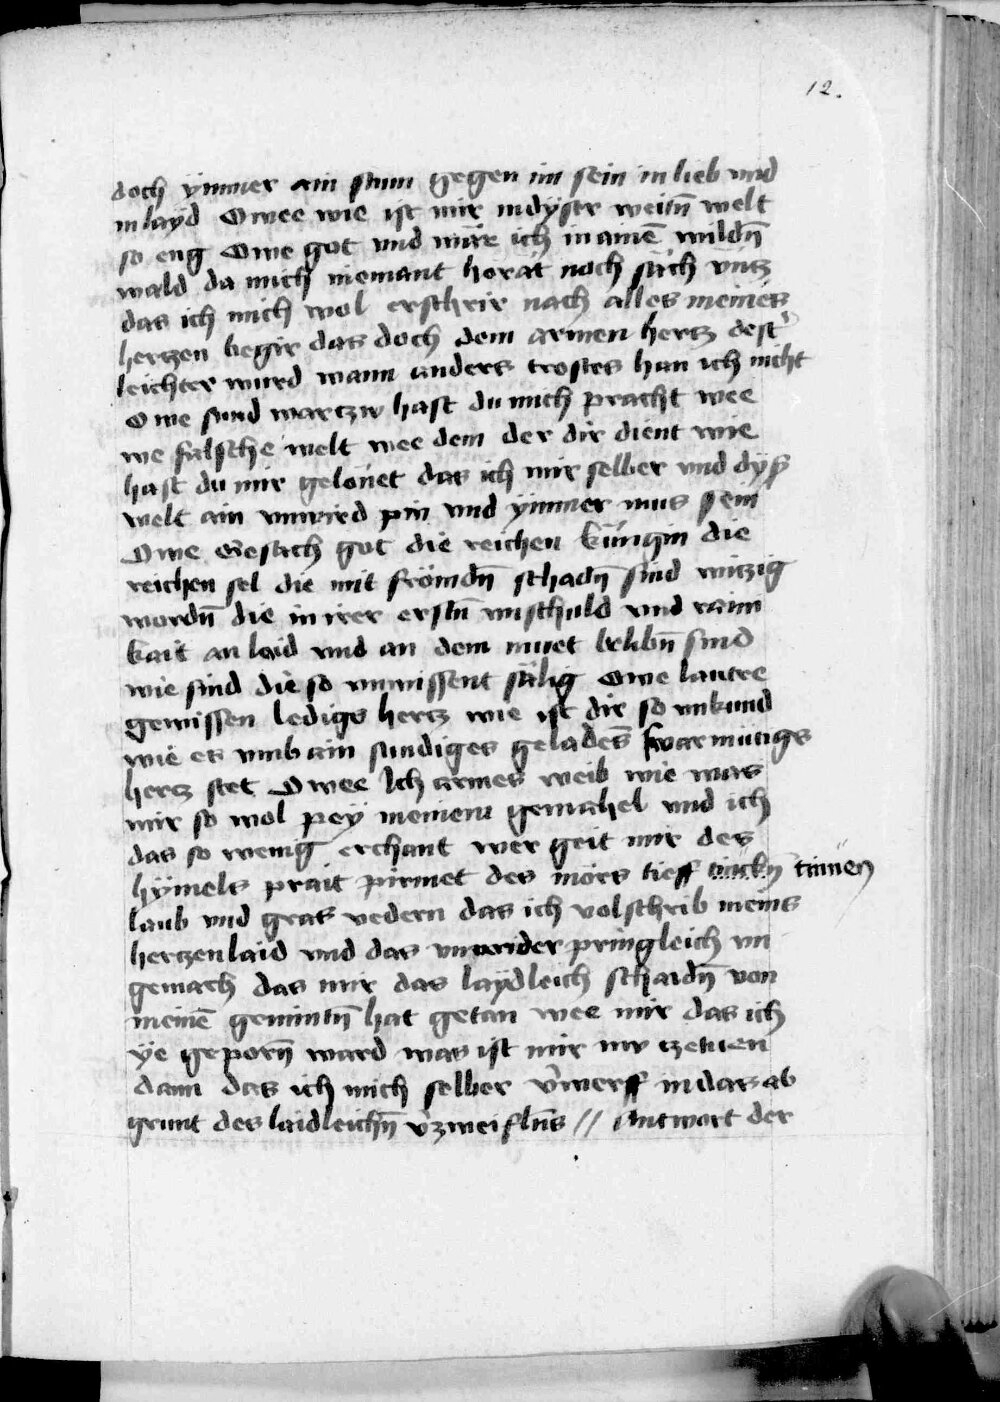 12.
doch ÿmmer ain stum gegen im sein in lieb vnd
in layd Owee wie ist mir in dyser weitn̄ welt
so eng Owe got vnd wär ich in ainē wildn̄
wald da mich niemant hörat noch säch vntz
das ich mich wol erschrir nach alles meines
hertzen begir das doch dem armen hertz dest̾
leichter wurd wann anders trostes han ich nicht
O we sund wartzw hast du mich pracht wee
we falsche welt wee dem der dir dient wie
hast du mir gelönet das ich mir selber vnd dyß
welt ain vnwird pin vnd ÿmmer mus sein
Owe Gesäch got die reichen künigin die
reichen sel die mit frömdn̄ schadn̄ sind witzig
wordn̄ die in irer erstn̄ vnschuld vnd raini
kait an laid vnd an dem muet belibn̄ sind
wie sind die so vnwissent sälig Owe lautre
gewissen ledigs hertz wie ist dir so vnkund
wie es vmb ain sundiges geladēs swarmütigs
hertz stet Owee Ich armes weib wie was
mir so wol pey meinem gemahel vnd ich
das so wenig erchant wer geit mir des
hÿmels prait pirmet des mörs tieff tinckn̄ tinnten
laub vnd gras vedern das ich volschrib meins
hertzenlaid vnd das vnwider pringleich vn
gemach das mir das laÿdleich schaidn̄ von
meinē gemintn̄ hat getan wee mir das ich
ÿe geporn̄ ward was ist mir nw tzetuen
dann das ich mich selber v̾werff in das ab
grunt des laidleichn̄ v̾zweiflns // Antwort der